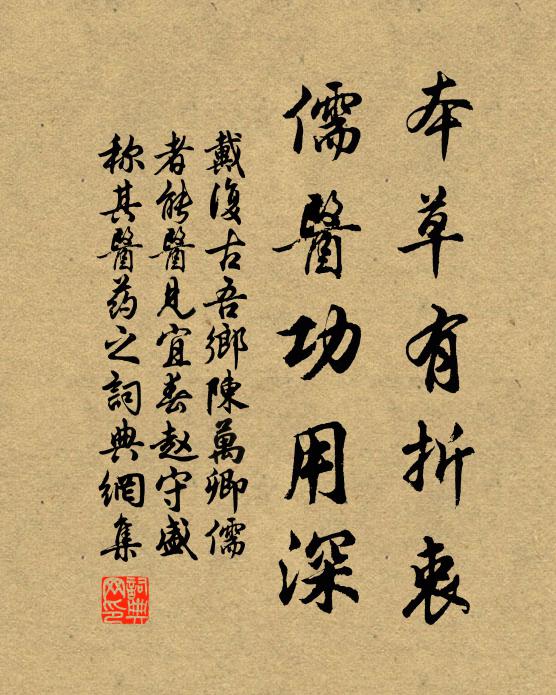 本草有折衷
儒醫功用深
戴復古吾鄉陳萬卿儒
者能醫見宜春赵守盛
称其醫药之詞典網集
詞典
网印